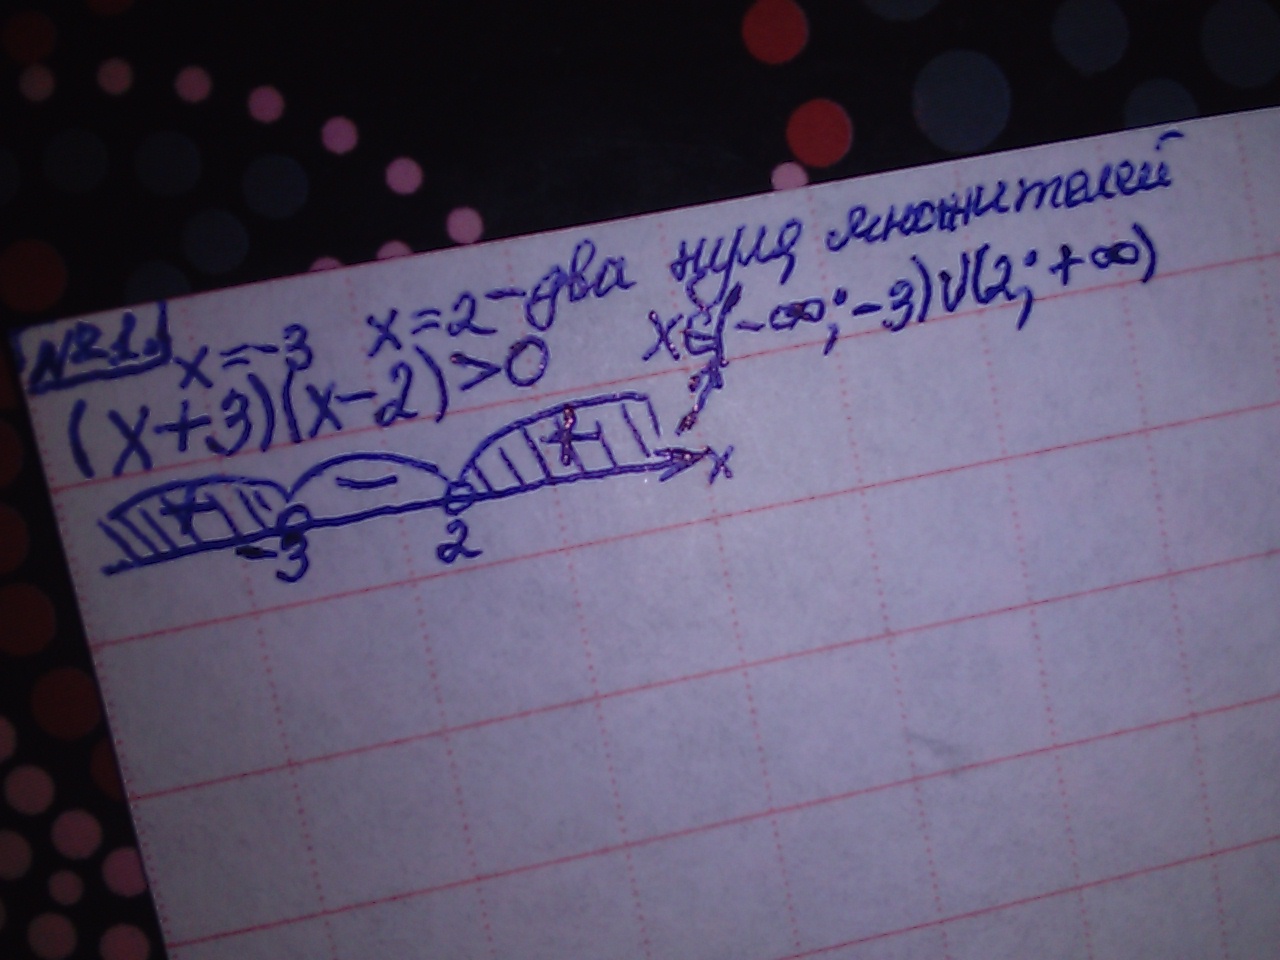 №21.
x=-3 x=2-два нуля множителей
(x+3)(x-2)>0 x∈(-∞;-3)∪(2;+∞)
+ - + x
-3 2